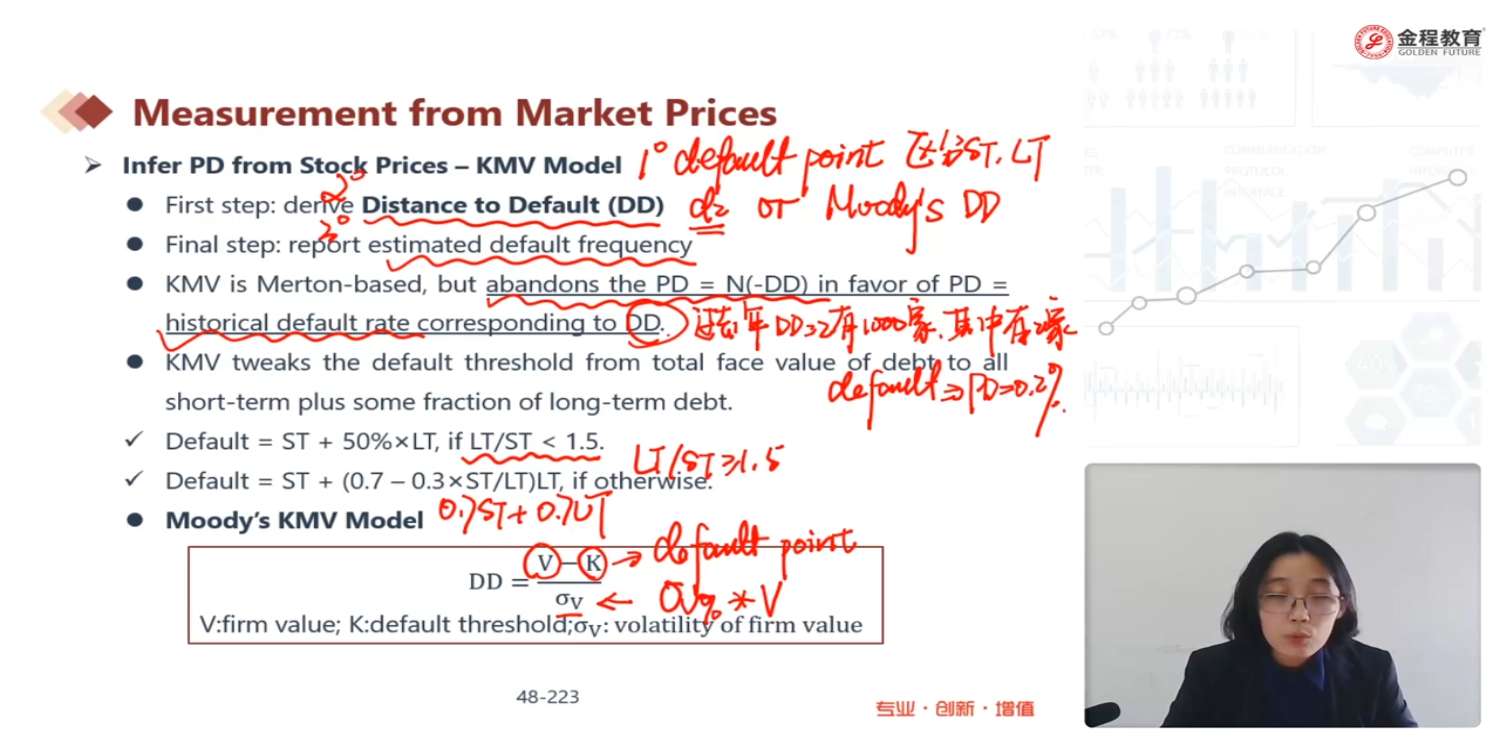 金程教育
GOLDEN FUTURE
Measurement from Market Prices
Infer PD from Stock Prices – KMV Model
1° default point 区分ST、LT
2°
First step: derive Distance to Default (DD)
d2 or Moody's DD
3°
Final step: report estimated default frequency
KMV is Merton-based, but abandons the PD = N(-DD) in favor of PD =
historical default rate corresponding to DD.
过去1年DD=2有1000家,其中有2家
default⇒PD=0.2%.
KMV tweaks the default threshold from total face value of debt to all
short-term plus some fraction of long-term debt.
Default = ST + 50%×LT, if LT/ST < 1.5.
LT/ST≥1.5
Default = ST + (0.7 – 0.3×ST/LT)LT, if otherwise.
0.7ST+0.7LT
Moody's KMV Model
DD = (V – K) / σV
→ default point
← σV% * V
V:firm value; K:default threshold;σV: volatility of firm value
48-223
专业·创新·增值